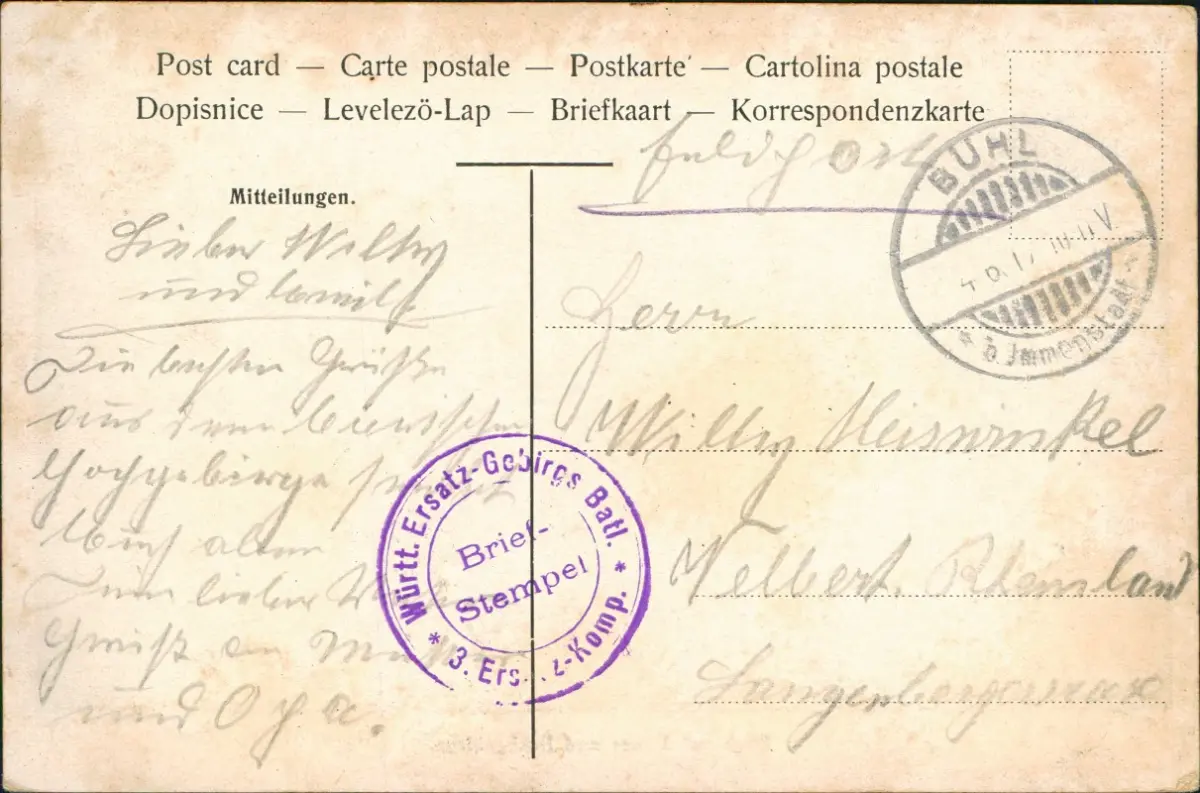 Post card — Carte postale — Postkarte — Cartolina postale
Dopisnice — Levelezö-Lap — Briefkaart — Korrespondenzkarte
Feldpost
BÜHL
4 9. 17 10-11 V
* b. Immenstadt *
Mitteilungen.
Lieber Willy
und Emil!
Die besten Grüße
aus dem
Hochgebirge sendet
Euch allen
Euer lieber
Gruß an
und Opa.
Württ. Ersatz-Gebirgs Batl.
* 3. Ers. z-Komp. *
Brief-
Stempel
Herrn
Willy Meiswinkel
Velbert Rheinland